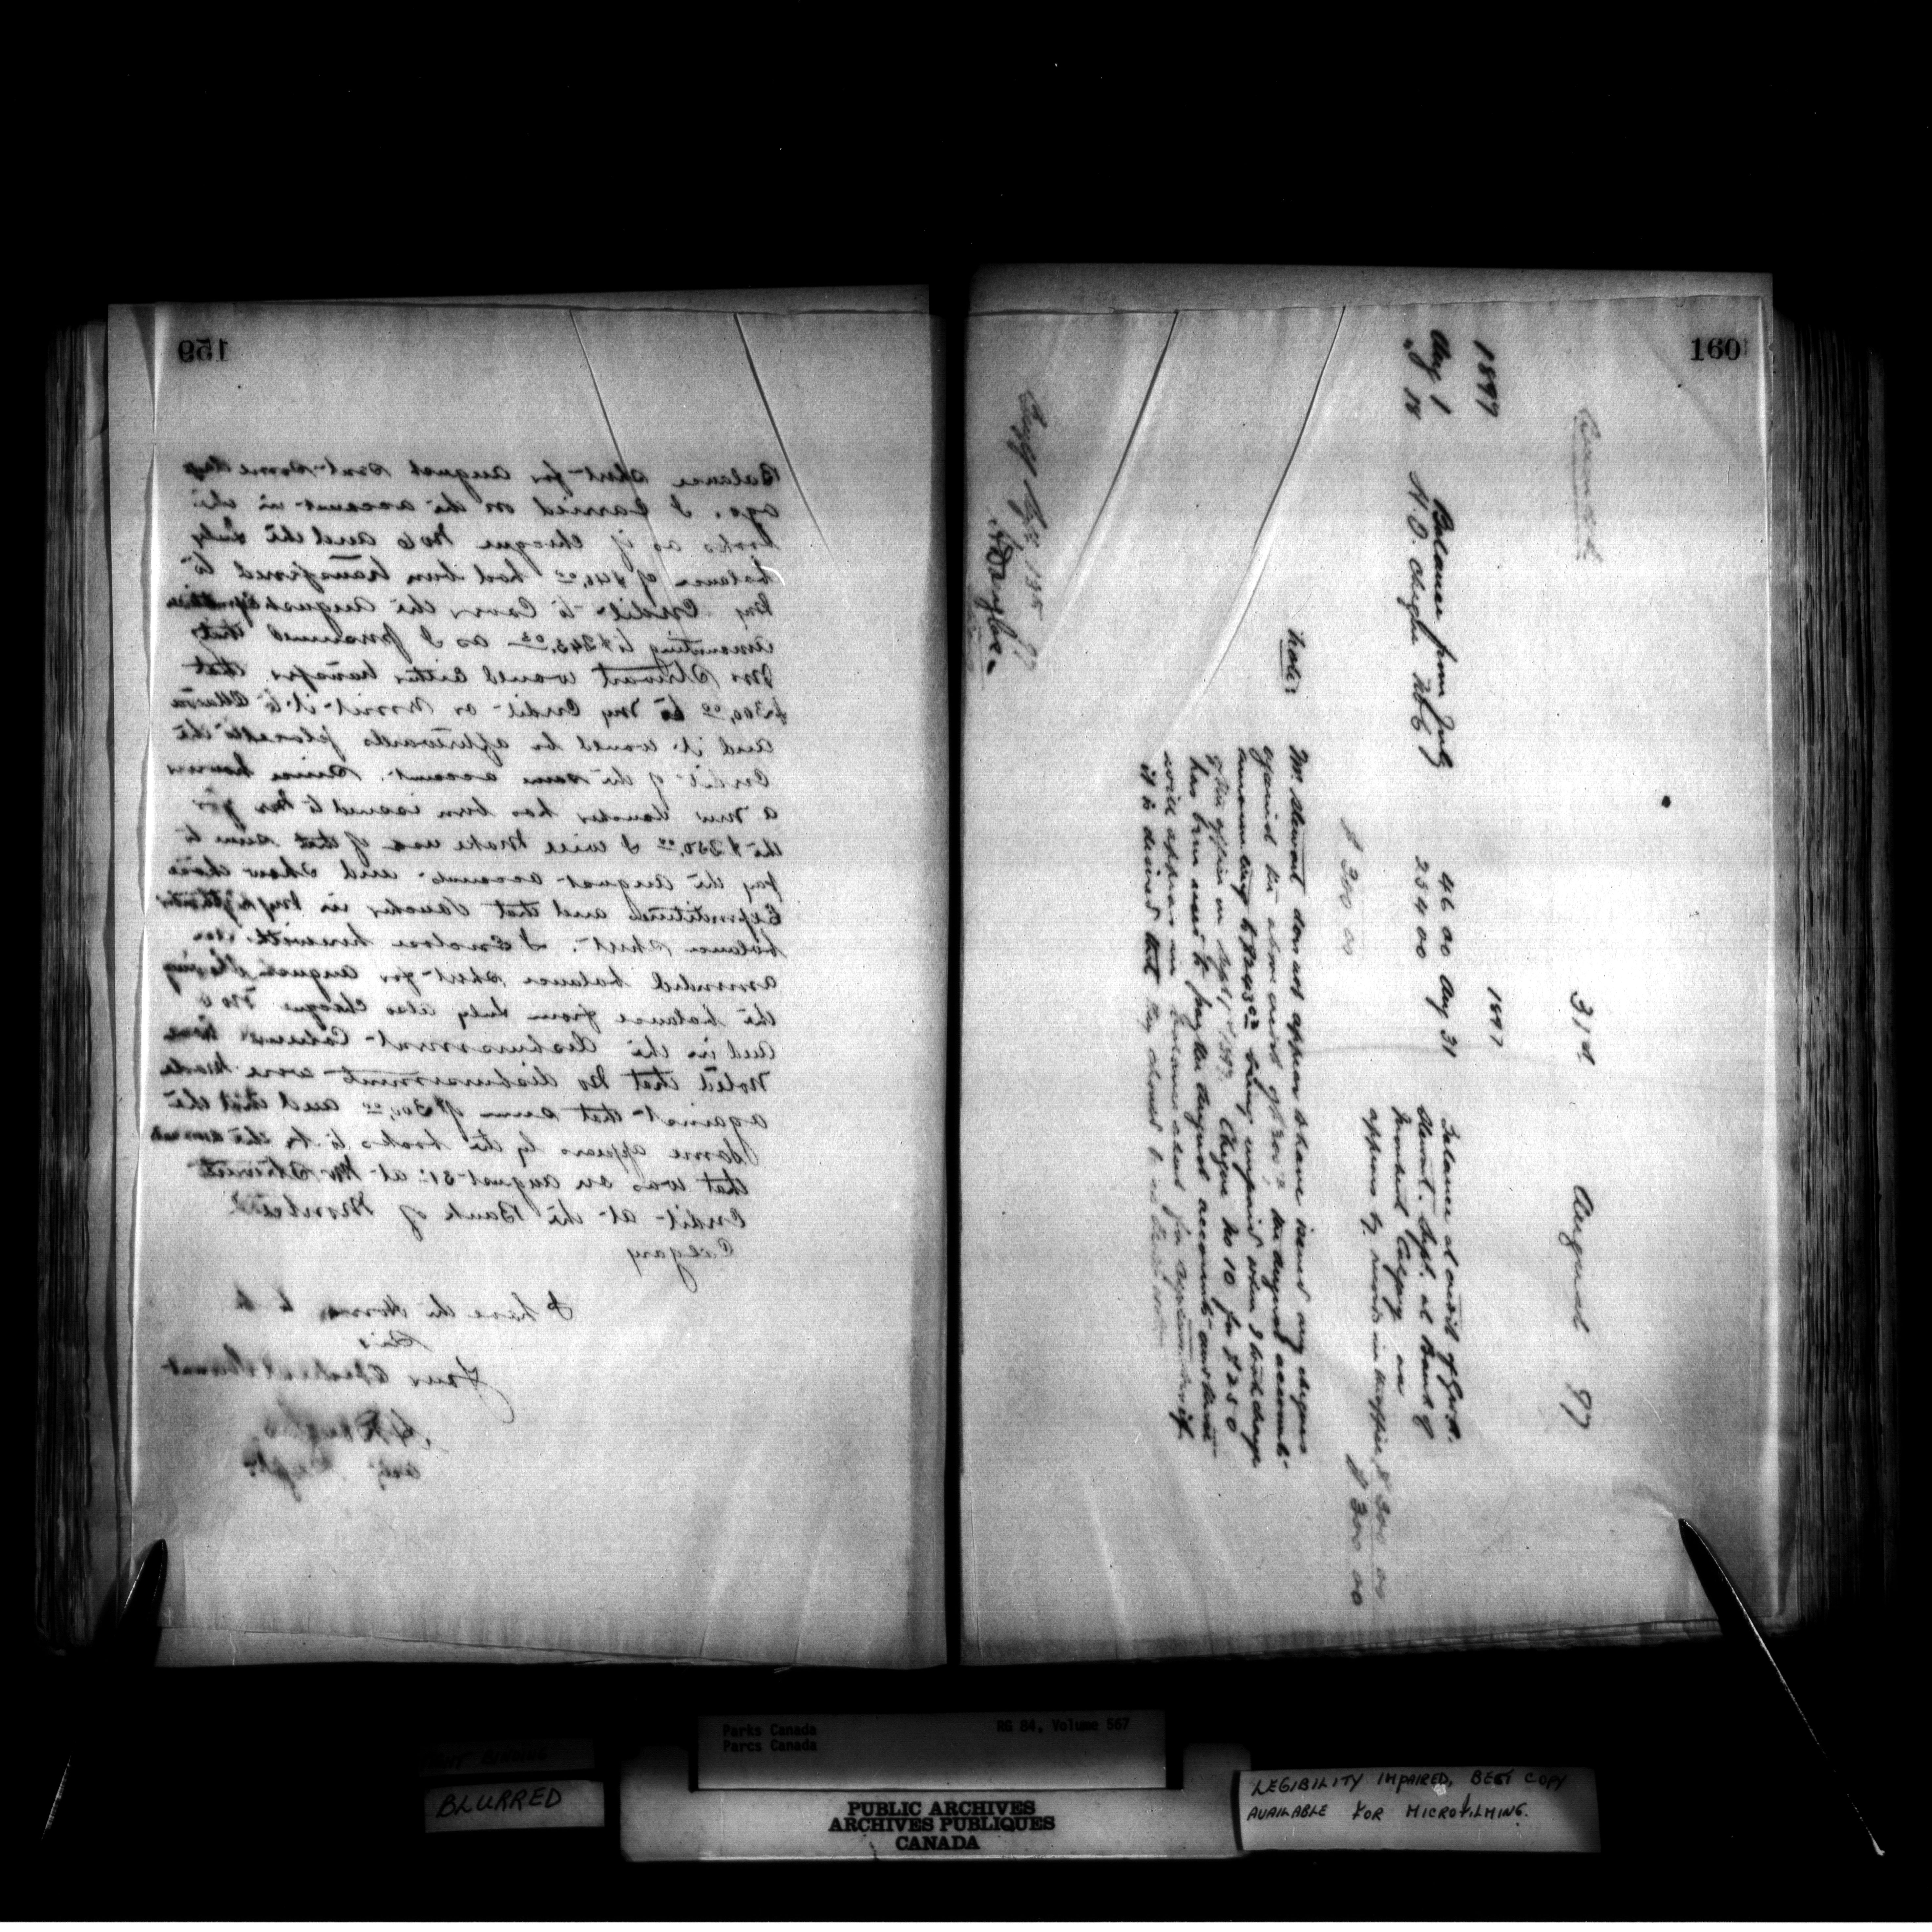 159
Balance sheet for August sent some days
ago. I carried on the account in the
books as if cheque No 6 and the July
balance of $46.00 had been transferred to
my Credit to Cover the August
amounting to $243.02 as I presumed that
Mr Stewart would either transfer that
$300.00 to my Credit or remit it to Ottawa
and it would be afterwards placed to the
Credit of the same account. Since however
a new voucher has been issued to me for
the $250.00 I will make use of that sum to
pay the August accounts and show those
Expenditures and that Voucher in my September
balance sheet. I Enclose herewith an
amended balance sheet for August showing
the balance from July also cheque No 6
and in the disbursement Column have
noted that no disbursements were made
against that sum of $300.00 and that the
same appears by the books to be the amount
that was on August 31st at Mr Stewart's
Credit at the Bank of Montreal
Calgary
I have the Honor to be
Sir
Your Obedient Servant
160
Amended
31st August 97
1897
1897
Aug 1 Balance from July 46 00 Aug 31 Balance at credit of
" 18 H.O. cheque No 6 254 00
Stewart. Supt. at Bank of
Montreal Calgary as
appears by records in this office $ 300 00
$ 300 00 $ 300 00
Note:
Mr Stewart does not appear to have issued any cheques
against the above credit of $300.00, the August accounts
amounting to $243.02 being unpaid when I took charge
of the office in Sept, 1897. Cheque No 10 for $250
has been used to pay the August accounts and
will appear in balance sheet for September if
it is desired that
Parks Canada
Parcs Canada
RG 84, Volume 567
BLURRED
PUBLIC ARCHIVES
ARCHIVES PUBLIQUES
CANADA
LEGIBILITY IMPAIRED, BEST COPY
AVAILABLE FOR MICROFILMING.